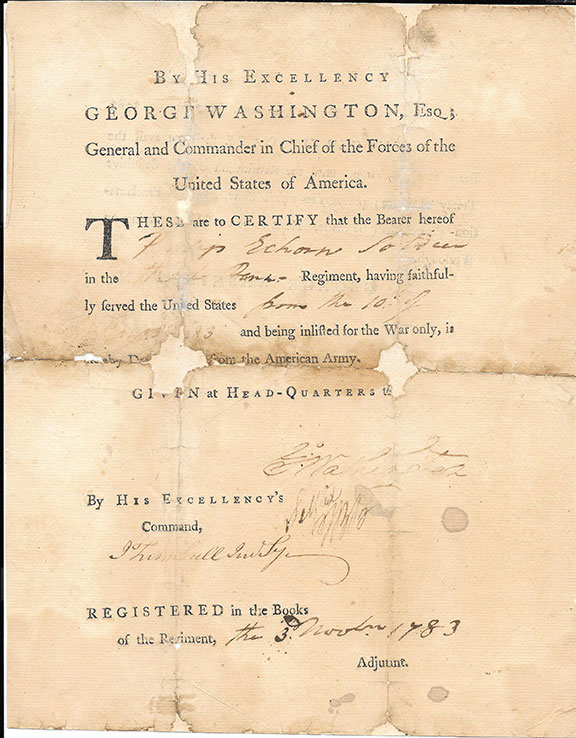 BY HIS EXCELLENCY
GEORGE WASHINGTON, Esq;
General and Commander in Chief of the Forces of the
United States of America.
THESE are to CERTIFY that the Bearer hereof
Echorn Soldier
in the Regiment, having faithful-
ly served the United States from the 10
and being inlisted for the War only, is
from the American Army.
GIVEN at HEAD-QUARTERS
Go Washington
By HIS EXCELLENCY'S
Command,
J Trumbull Jun Sy
REGISTERED in the Books
of the Regiment, the 3d Novbr 1783
Adjutant.